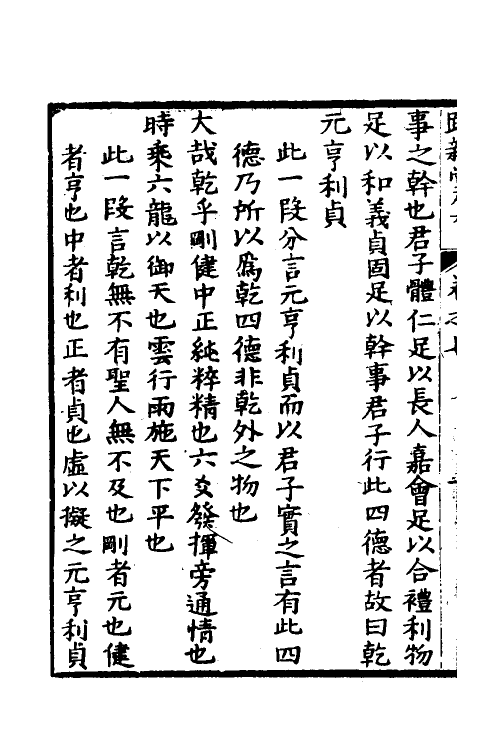 事之幹也君子體仁足以長人嘉會足以合禮利物
足以和義貞固足以幹事君子行此四德者故曰乾
元亨利貞
此一段分言元亨利貞而以君子實之言有此四
德乃所以爲乾四德非乾外之物也
大哉乾乎剛健中正純粹精也六爻發揮旁通情也
時乘六龍以御天也雲行雨施天下平也
此一段言乾無不有聖人無不及也剛者元也健
者亨也中者利也正者貞也虛以擬之元亨利貞